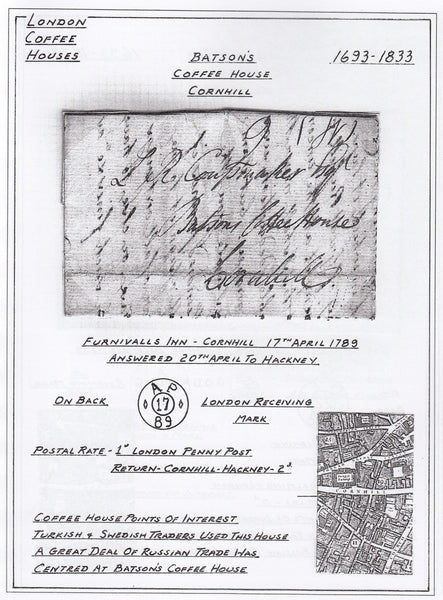 London
Coffee
Houses
Batson's
Coffee House
Cornhill
1693-1833
Batsons Coffee House
Cornhill
Furnivalls Inn - Cornhill 17TH April 1789
Answered 20TH April To Hackney
On Back
AP
17
89
London Receiving
Mark
Postal Rate - 1D London Penny Post
Return - Cornhill - Hackney - 2D
CORNHILL
Coffee House Points Of Interest
Turkish & Swedish Traders Used This House
A Great Deal Of Russian Trade Was
Centred At Batson's Coffee House